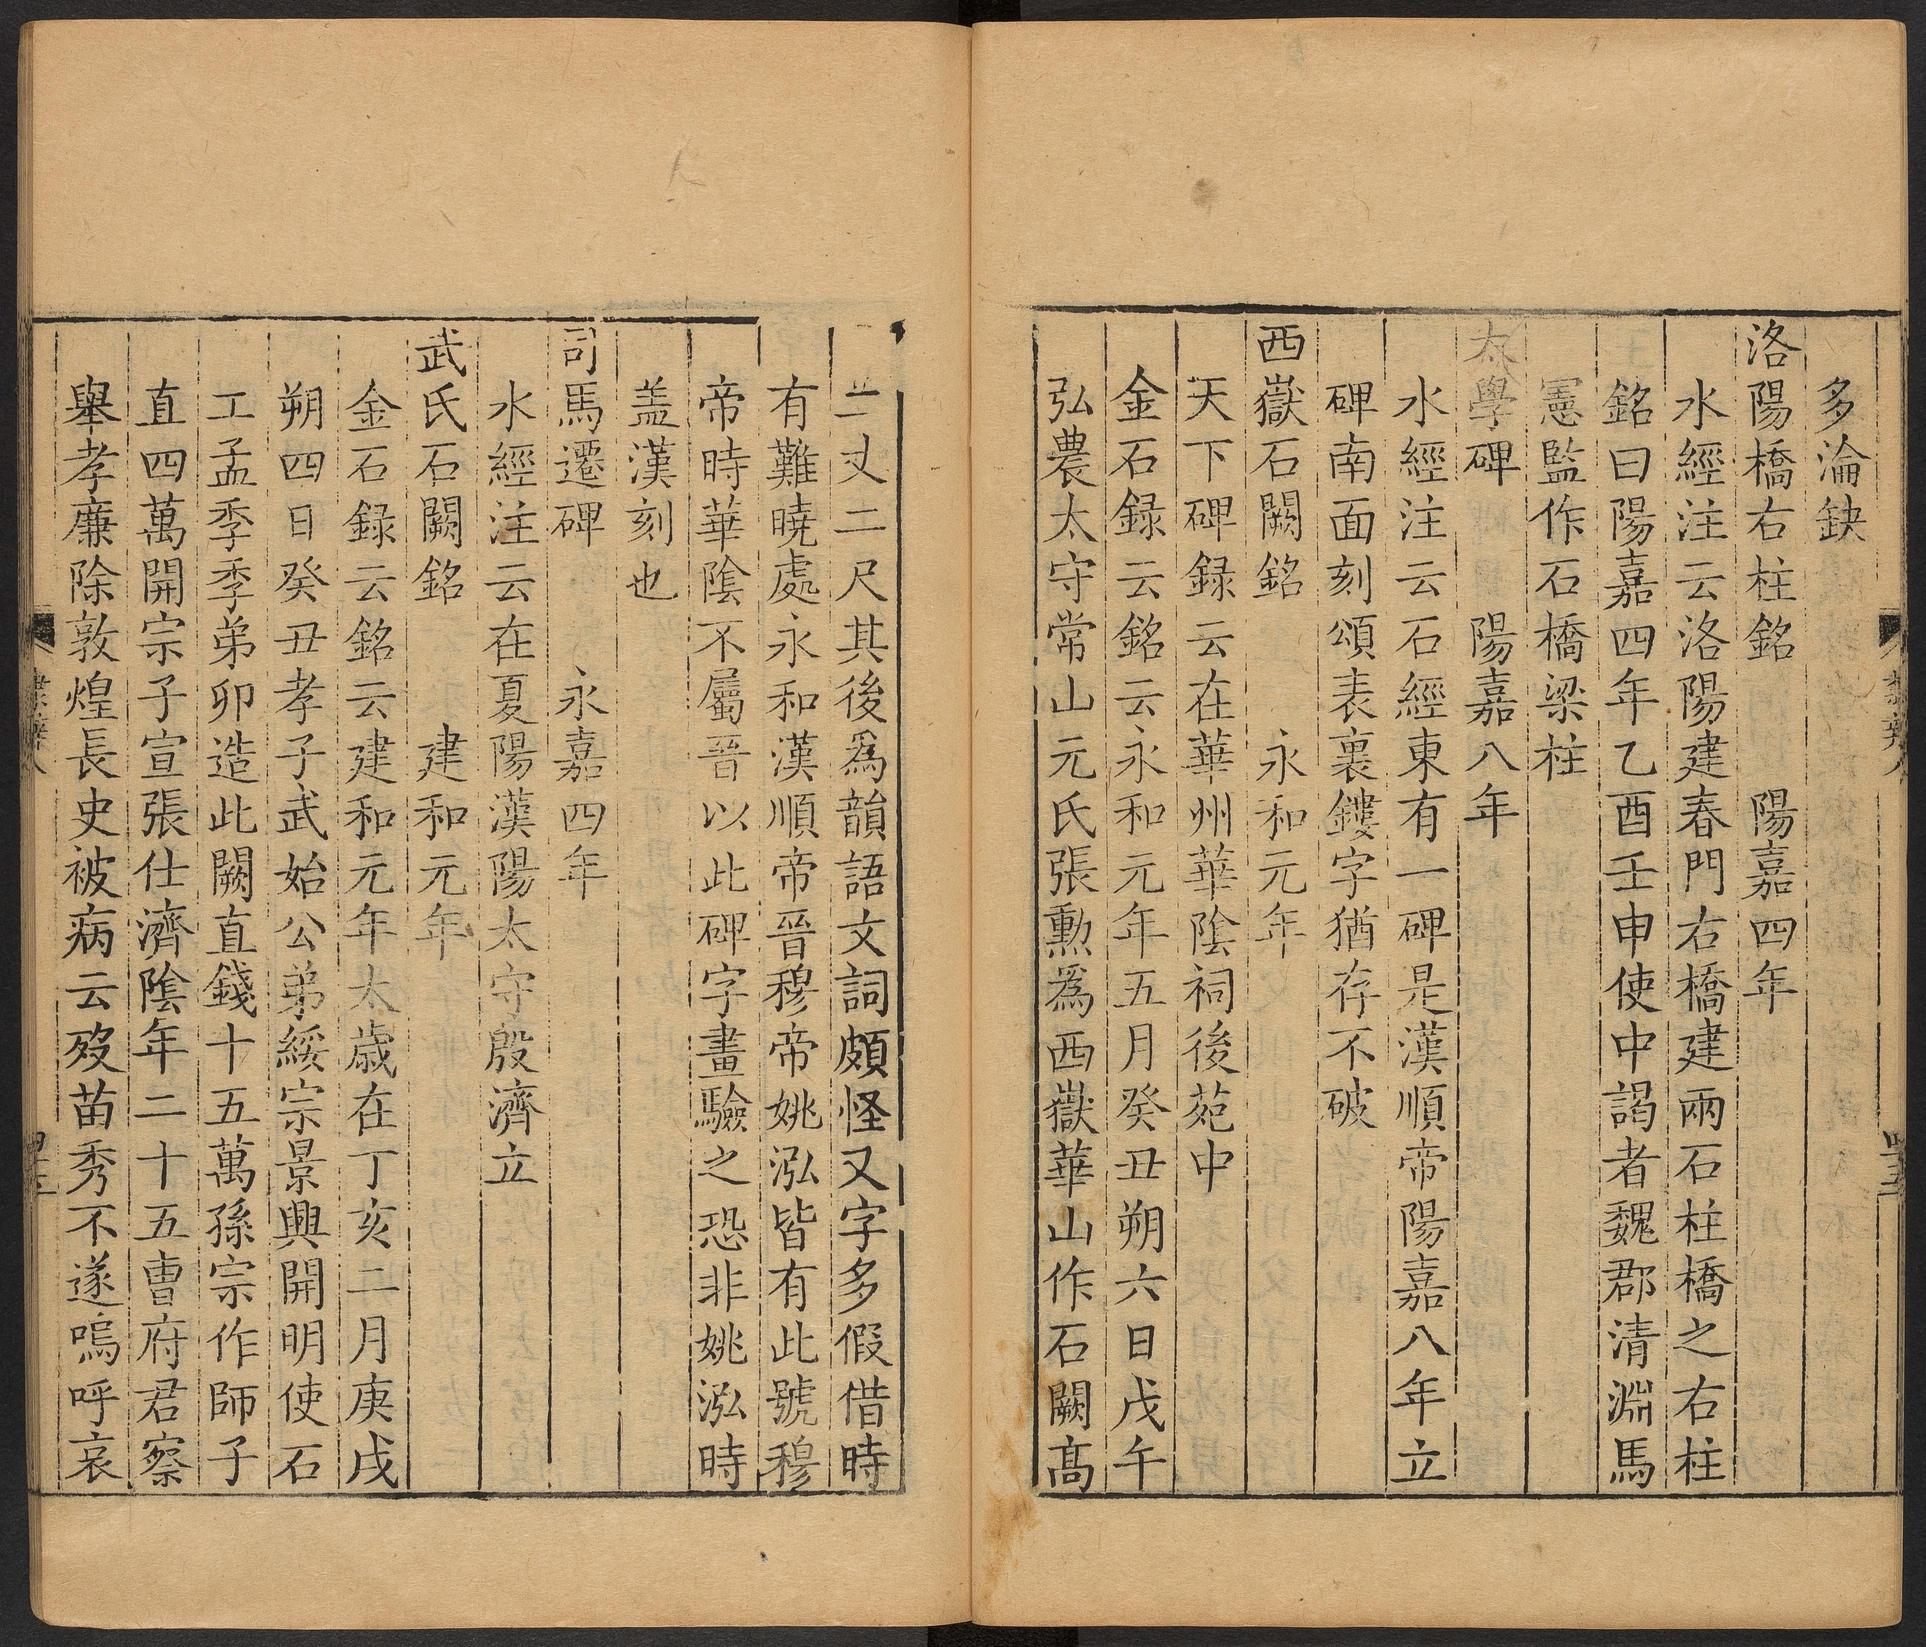 多淪缺
洛陽橋右柱銘　陽嘉四年
水經注云洛陽建春門右橋建兩石柱橋之右柱
銘曰陽嘉四年乙酉壬申使中謁者魏郡清淵馬
憲監作石橋梁柱
太學碑　陽嘉八年
水經注云石經東有一碑是漢順帝陽嘉八年立
碑南面刻頌表裏鏤字猶存不破
西嶽石闕銘　永和元年
天下碑録云在華州華陰祠後苑中
金石録云銘云永和元年五月癸丑朔六日戊午
弘農太守常山元氏張勲爲西嶽華山作石闕髙
二丈二尺其後爲韻語文詞頗怪又字多假借時
有難曉處永和漢順帝晉穆帝姚泓皆有此號穆
帝時華陰不屬晉以此碑字畫驗之恐非姚泓時
盖漢刻也
司馬遷碑　永嘉四年
水經注云在夏陽漢陽太守殷濟立
武氏石闕銘　建和元年
金石録云銘云建和元年太歲在丁亥二月庚戌
朔四日癸丑孝子武始公弟綏宗景興開明使石
工孟季季弟卯造此闕直錢十五萬孫宗作師子
直四萬開宗子宣張仕濟陰年二十五曹府君察
舉孝廉除敦煌長史被病云歿苗秀不遂嗚呼哀